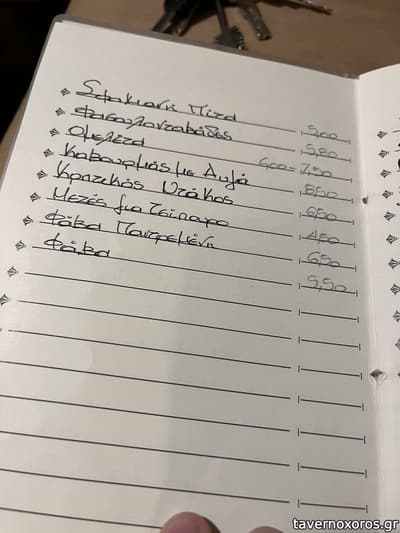 Σφακιανή Πίτα 5,00
Φασουλονταβάδες 5,80
Ομελέτα 6,00 - 7,50
Καβουρμάς με Αυγά 8,50
Κρητικός Ντάκος 6,50
Μεζές για Τσίπουρο 4,50
Φάβα Παντρεμένη 6,50
Φάβα 5,50
tavernoxoros.gr